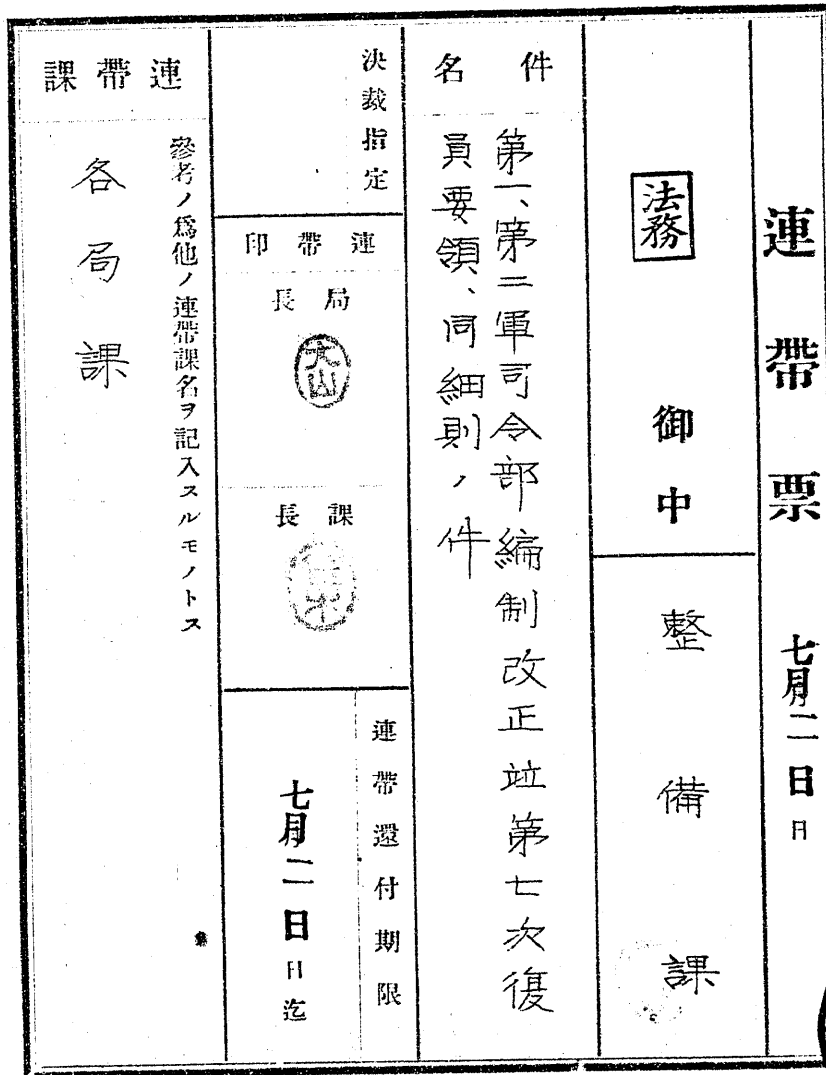 連帶票 七月二日日
法務 御中
整備課
件名
第一、第二軍司令部編制改正竝第七次復
員要領、同細則ノ件
決裁指定
連帶印
局長
大山
課長
連帶還付期限
七月二日日迄
連帶課
參考ノ爲他ノ連帶課名ヲ記入スルモノトス
各局課